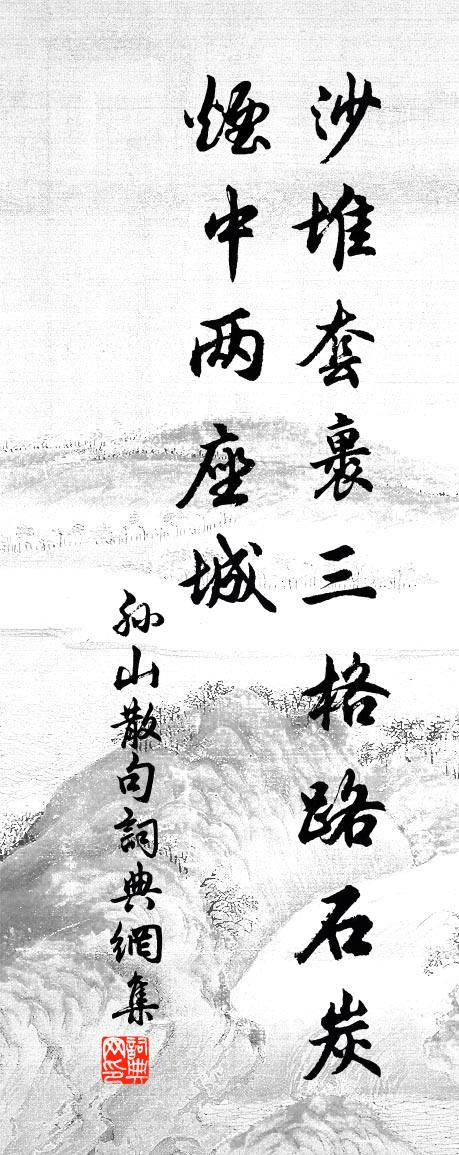 沙堆套裹三格路石炭
煙中两座城
孫山散句詞典網集
詞典
网印